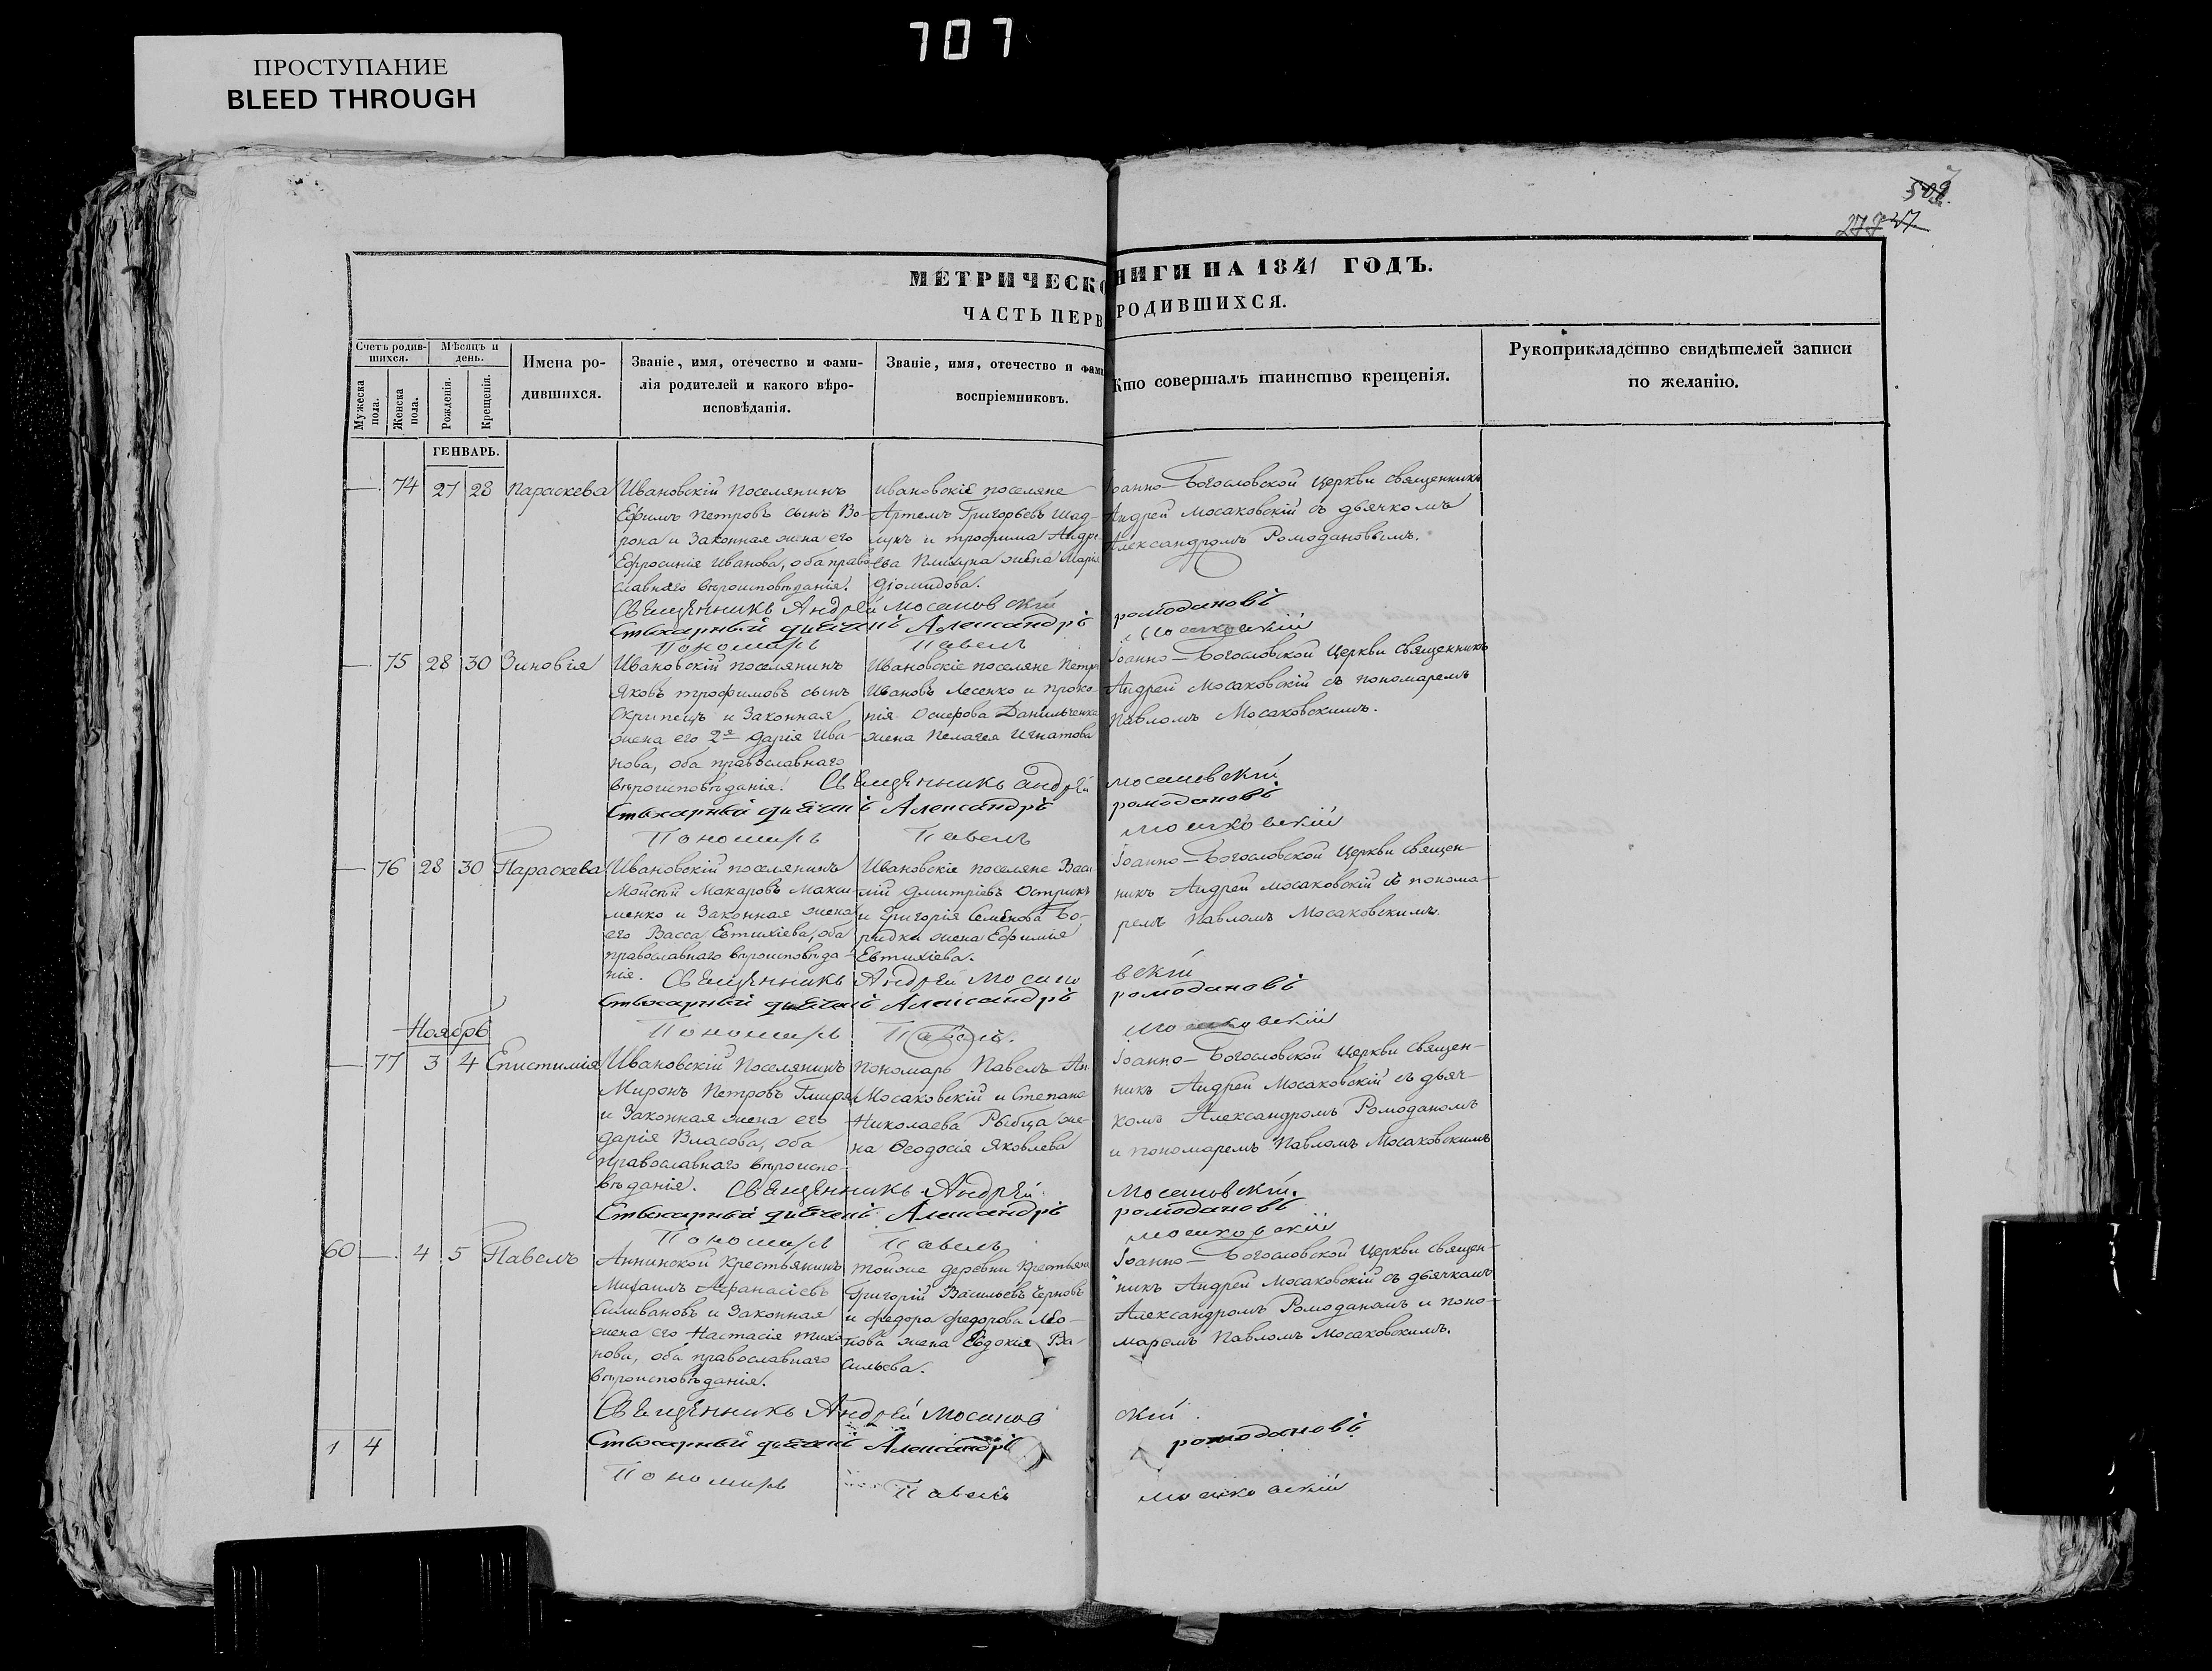 707
ПРОСТУПАНИЕ
BLEED THROUGH
МЕТРИЧЕСКО НИГИ НА 1841 ГОДЪ.
ЧАСТЬ ПЕРВ РОДИВШИХСЯ.
Счетъ родив-
шихся.
Мужеска
пола.
Женска
пола.
Мѣсяцъ и
день.
Рожденія.
Крещенія.
Имена ро-
дившихся.
Званіе, имя, отечество и фами-
лія родителей и какого вѣро-
исповѣданія.
Званіе, имя, отечество и фами
воспріемниковъ.
Кто совершалъ таинство крещенія.
Рукоприкладство свидѣтелей записи
по желанію.
ГЕНВАРЬ.
— 74 27 28 Параскева
Ивановскій Поселянинъ
Ефимъ Петровъ сынъ Во-
рона и Законная жена его
Ефросинія Иванова, оба право-
славнаго вѣроисповѣданія.
Ивановскіе поселяне
Артемъ Григорьевъ
и Трофима Андре
ева жена Марія
Діомидова.
Іоанно-Богословской Церкви священникъ
Андрей Мосаковскій съ дьячкомъ
Александромъ Ромодановымъ.
Священникъ Андрей Мосаковскій
Стихарный дьячекъ Александръ Ромодановъ
Пономарь Павелъ Мосаковскій
— 75 28 30 Зиновія
Ивановскій поселянинъ
Яковъ Трофимовъ сынъ
Скрипецъ и Законная
жена его 2я Дарія Ива-
нова, оба православнаго
вѣроисповѣданія.
Ивановскіе поселяне Петръ
Ивановъ Лесенко и Проко-
пія Данильченка
жена Пелагея Игнатова
Іоанно-Богословской Церкви Священникъ
Андрей Мосаковскій съ пономаремъ
Павломъ Мосаковскимъ.
Священникъ Андрей Мосаковскій
Стихарный дьячекъ Александръ Ромодановъ
Пономарь Павелъ Мосаковскій
— 76 28 30 Параскева
Ивановскій поселянинъ
Мойсей Макаровъ Макси-
менко и Законная жена
его Васса Евтихіева, оба
православнаго вѣроисповѣда-
нія.
Ивановскіе поселяне Васи
лій Дмитріевъ
и Григорія Семенова
жена Ефимія
Евтихіева.
Іоанно-Богословской Церкви священ-
никъ Андрей Мосаковскій съ понома-
ремъ Павломъ Мосаковскимъ.
Священникъ Андрей Мосаковскій
Стихарный дьячекъ Александръ Ромодановъ
Пономарь Павелъ Мосаковскій
Ноябрь
— 77 3 4 Епистимія
Ивановскій Поселянинъ
Миронъ Петровъ
и Законная жена его
Дарія Власова, оба
православнаго вѣроиспо-
вѣданія.
Пономарь Павелъ Ан.
Мосаковскій и Степана
Николаева Рыбца же-
на Ѳеодосія Яковлева
Іоанно-Богословской Церкви священ-
никъ Андрей Мосаковскій съ дьяч-
комъ Александромъ Ромоданомъ
и пономаремъ Павломъ Мосаковскимъ
Священникъ Андрей Мосаковскій.
Стихарный дьячекъ Александръ Ромодановъ
Пономарь Павелъ Мосаковскій
60 — 4 5 Павелъ
Аннинской Крестьянинъ
Михаилъ Афанасіевъ
Силивановъ и Законная
жена его Настасія Тихо-
нова, оба православнаго
вѣроисповѣданія.
Тойже деревни Крестьяне
Григорій Васильевъ Черновъ
и Федора Федорова Лео-
нова жена Евдокія Ва-
сильева.
Іоанно-Богословской Церкви священ-
никъ Андрей Мосаковскій съ дьячкомъ
Александромъ Ромоданомъ и поно-
маремъ Павломъ Мосаковскимъ.
Священникъ Андрей Мосаковскій
1 4
Стихарный дьячекъ Александръ Ромодановъ
Пономарь Павелъ Мосаковскій